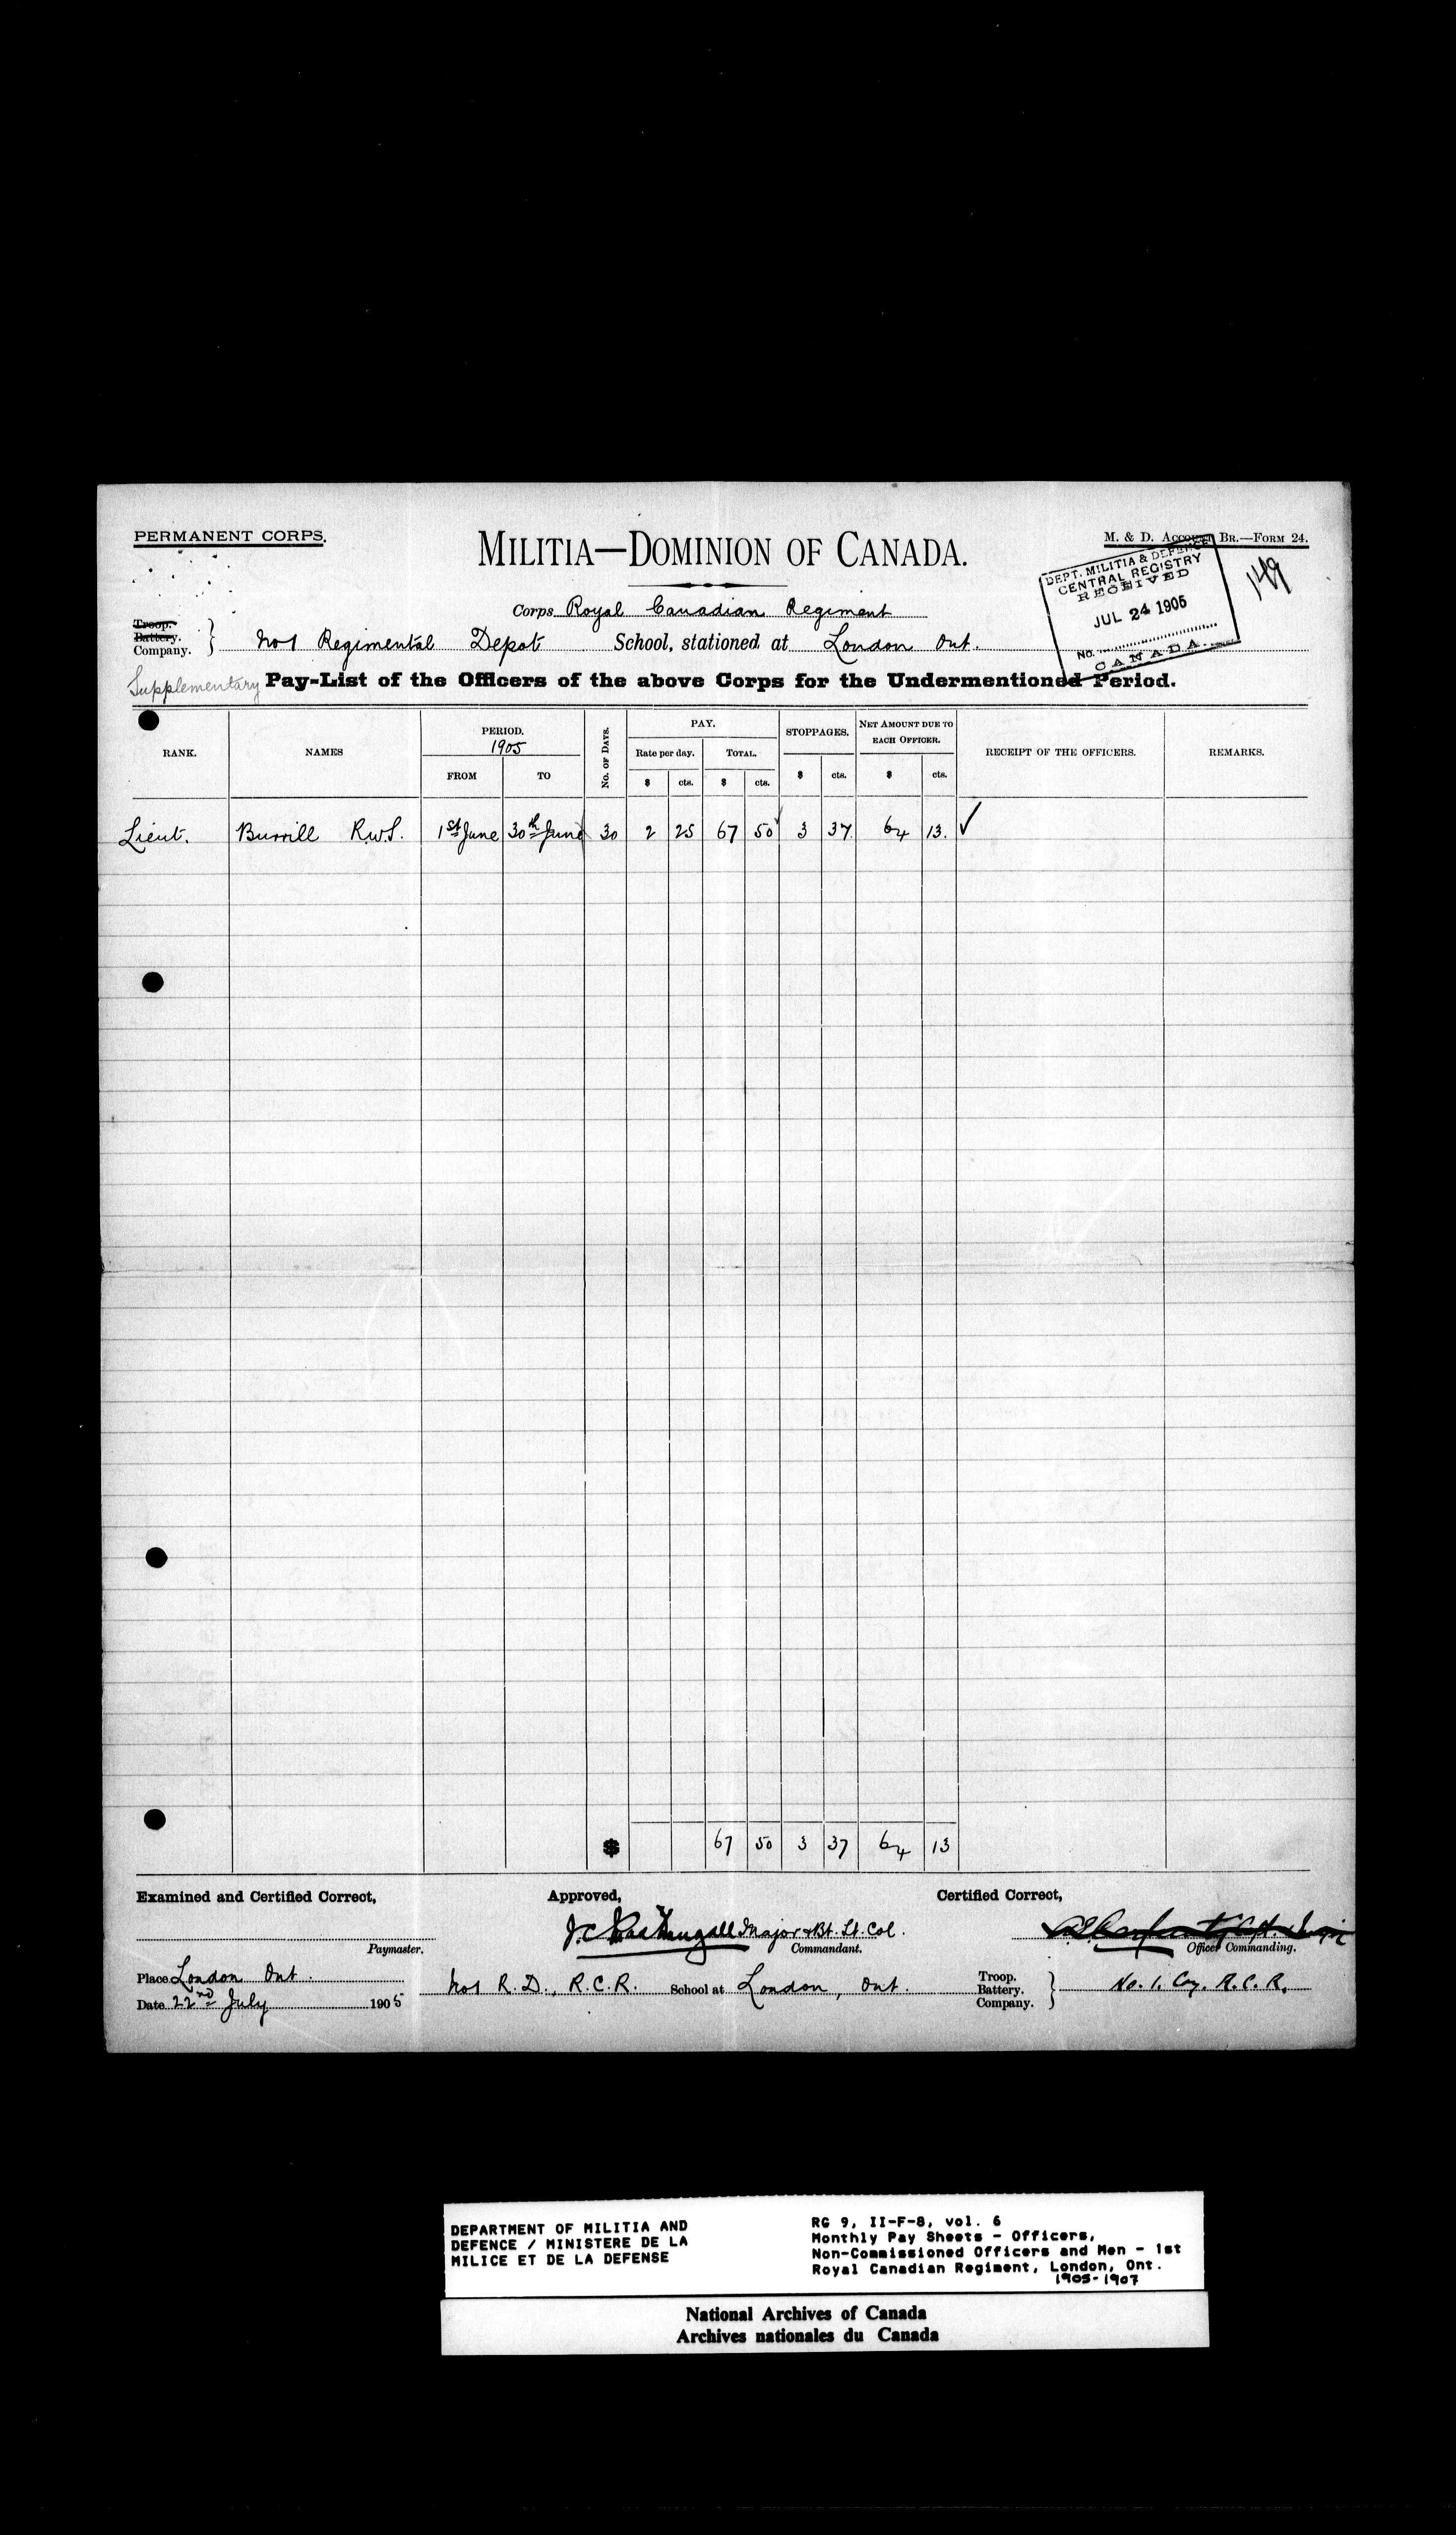 PERMANENT CORPS.
MILITIA—DOMINION OF CANADA.
M. & D. Account Br.—Form 24.
DEPT. MILITIA & DEFENCE
CENTRAL REGISTRY
RECEIVED
JUL 24 1905
No.
CANADA
149
Corps Royal Canadian Regiment
Troop.
Battery.
Company. } No 1 Regimental Depot School, stationed at London Ont.
Supplementary Pay-List of the Officers of the above Corps for the Undermentioned Period.
RANK. NAMES PERIOD. 1905 FROM TO No. of Days. PAY. Rate per day. $ cts. Total. $ cts. STOPPAGES. $ cts. Net Amount due to each Officer. $ cts. RECEIPT OF THE OFFICERS. REMARKS.
Lieut. Burrill R.W.S. 1st June 30th June 30 2 25 67 50 3 37 64 13.
$ 67 50 3 37 64 13
Examined and Certified Correct, Approved, Certified Correct,
J.C. MacDougall Major & Bt. Lt. Col.
Paymaster. Commandant. Officer Commanding.
Place London Ont.
Date 22nd July 1905
No 1 R.D., R.C.R. School at London, Ont.
Troop.
Battery.
Company. } No. 1. Coy. R.C.R.
DEPARTMENT OF MILITIA AND
DEFENCE / MINISTERE DE LA
MILICE ET DE LA DEFENSE
RG 9, II-F-8, vol. 6
Monthly Pay Sheets - Officers,
Non-Commissioned Officers and Men - 1st
Royal Canadian Regiment, London, Ont.
1905-1907
National Archives of Canada
Archives nationales du Canada